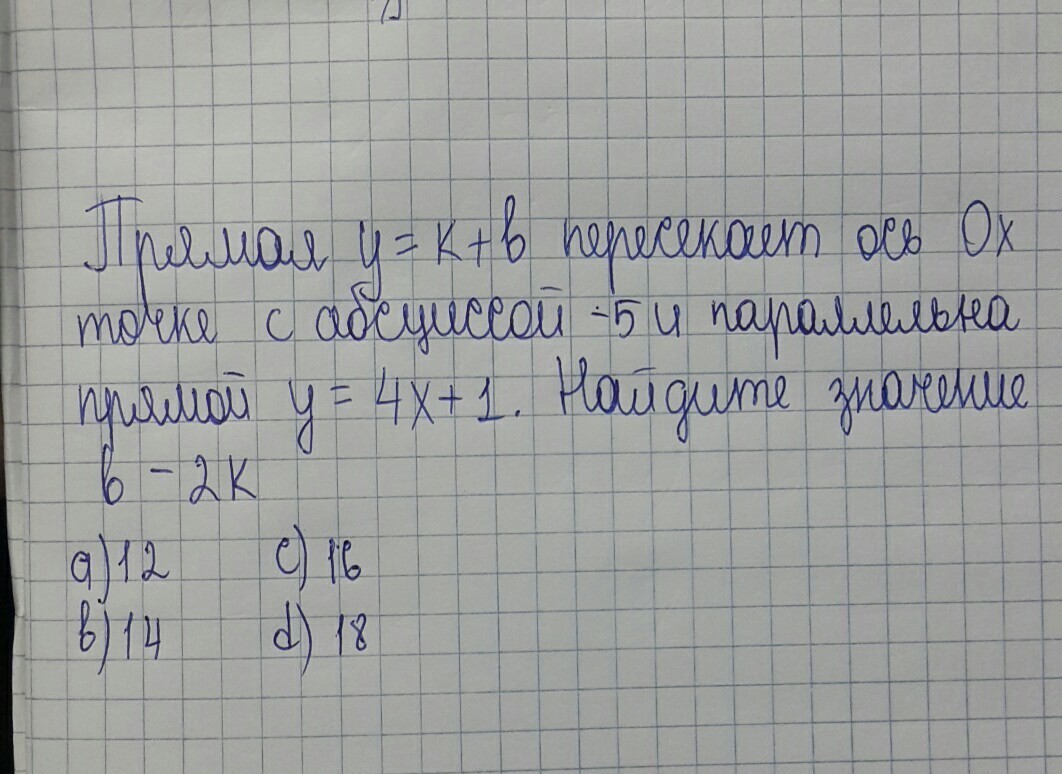 Прямая y = k + b пересекает ось Ox
точке с абсциссой -5 и параллельна
прямой y = 4x + 1. Найдите значение
b - 2k
a) 12 c) 16
b) 14 d) 18